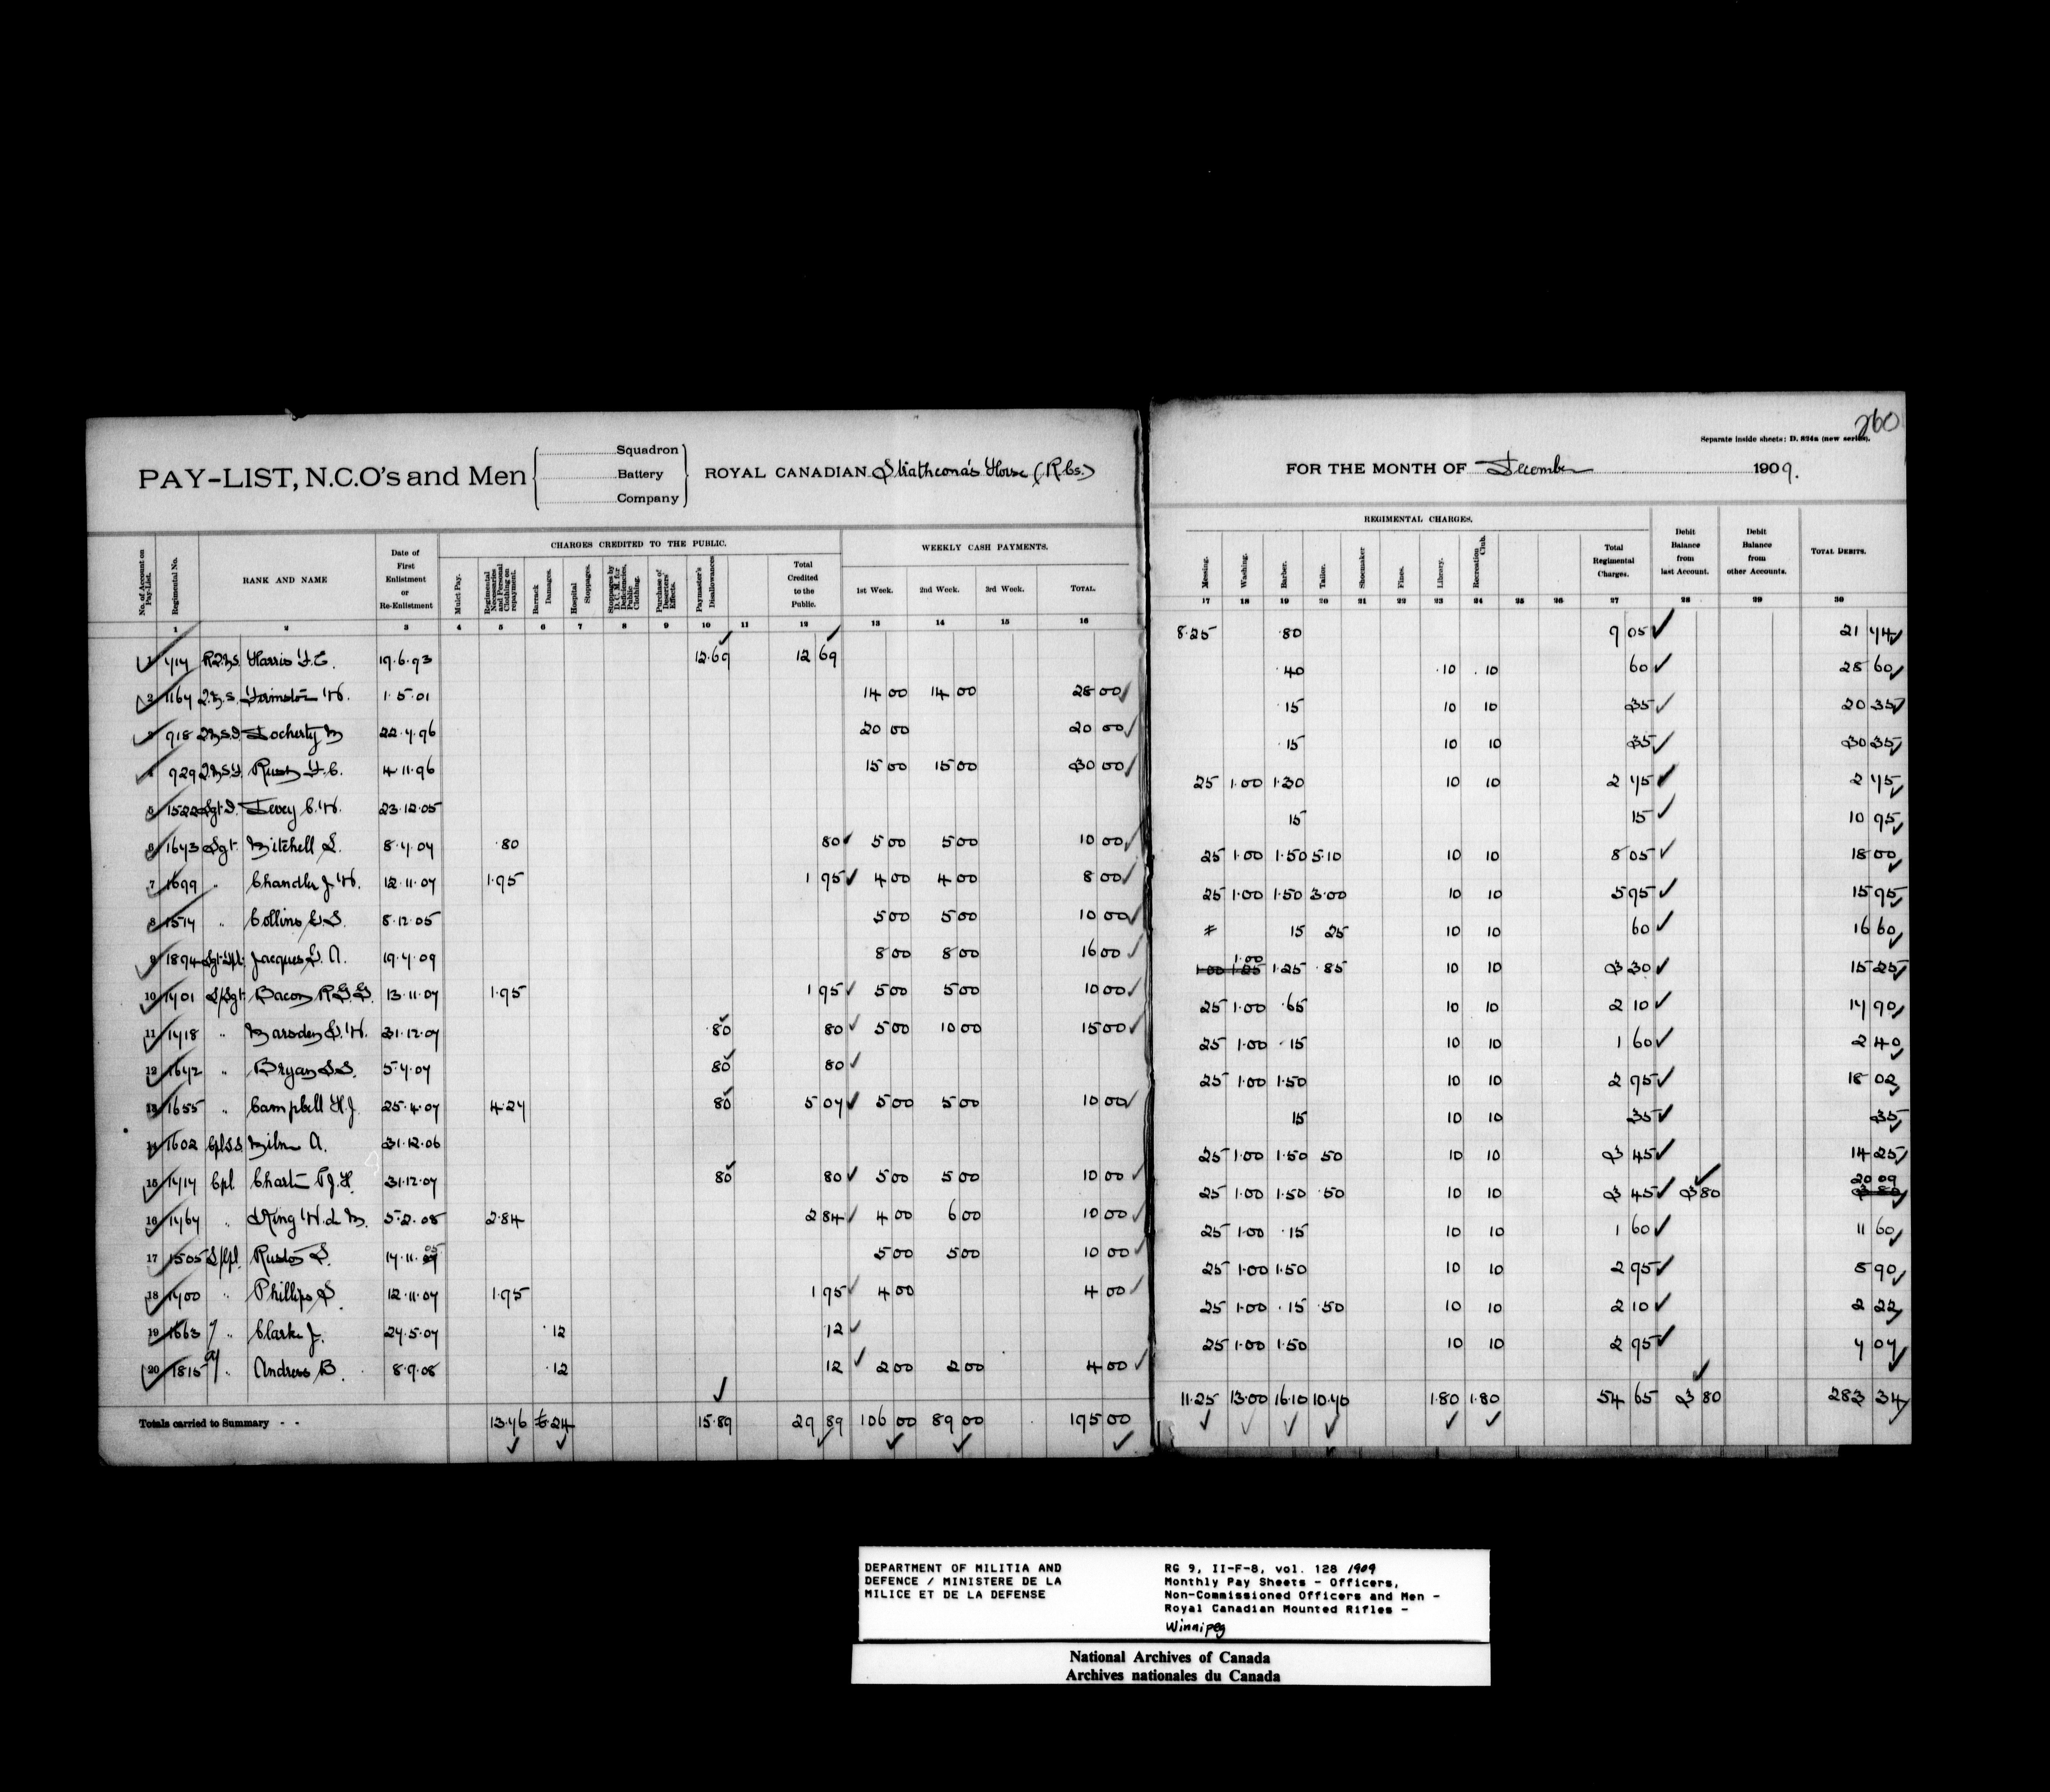 260
Separate inside sheets: D. 824a (new series).
PAY-LIST, N.C.O's and Men
Squadron
Battery
Company
ROYAL CANADIAN Strathcona's Horse (R.Cs.)
FOR THE MONTH OF December 1909.
No. of Account on Pay-List.
Regimental No.
RANK AND NAME
Date of First Enlistment or Re-Enlistment
CHARGES CREDITED TO THE PUBLIC.
Mulct Pay.
Regimental Necessaries and Personal Clothing on repayment.
Barrack Damages.
Hospital Stoppages.
Stoppages by D.C.M. for Deficiencies, Public Clothing.
Purchase of Deserters' Effects.
Paymaster's Disallowances
Total Credited to the Public.
WEEKLY CASH PAYMENTS.
1st Week. 2nd Week. 3rd Week. TOTAL.
REGIMENTAL CHARGES.
Messing. Washing. Barber. Tailor. Shoemaker Fines. Library. Recreation Club.
Total Regimental Charges.
Debit Balance from last Account.
Debit Balance from other Accounts.
TOTAL DEBITS.
1 2 3 4 5 6 7 8 9 10 11 12 13 14 15 16 17 18 19 20 21 22 23 24 25 26 27 28 29 30
1 717 R.Q.M.S. Harris 19.6.93 12.69 12 69 8.25 .80 9 05 21 74
2 1167 Q.M.S. 1.5.01 14 00 14 00 28 00 .40 .10 .10 60 28 60
3 918 Docherty M 22.7.96 20 00 20 00 .15 10 10 35 20 35
4 929 4.11.96 15 00 15 00 30 00 .15 10 10 35 30 35
5 1522 23.12.05 25 1.00 1.30 10 10 2 75 2 75
6 1673 Sgt. Mitchell 8.7.07 .80 80 5 00 5 00 10 00 15 15 10 95
7 1699 " Chandler J.W. 12.11.07 1.95 1 95 4 00 4 00 8 00 25 1.00 1.50 5.10 10 10 8 05 18 00
8 1517 " Collins 8.12.05 5 00 5 00 10 00 25 1.00 1.50 3.00 10 10 5 95 15 95
9 1894 Jacques A. 19.7.09 8 00 8 00 16 00 15 25 10 10 60 16 60
10 1701 L/Sgt. Bacon 13.11.07 1.95 1 95 5 00 5 00 10 00 1.00 1.25 1.00 1.25 .85 10 10 3 30 15 25
11 1718 " Marsden 31.12.07 .80 80 5 00 10 00 15 00 25 1.00 .65 10 10 2 10 17 90
12 1672 " Bryan 5.7.07 80 80 25 1.00 .15 10 10 1 60 2 40
13 1655 " Campbell H.J. 25.4.07 4.27 80 5 07 5 00 5 00 10 00 25 1.00 1.50 10 10 2 95 18 02
14 1602 Milne A. 31.12.06 15 10 10 35 35
15 1717 Cpl 31.12.07 80 80 5 00 5 00 10 00 25 1.00 1.50 50 10 10 3 45 14 25
16 1767 " King 5.2.08 2.84 2 84 4 00 6 00 10 00 25 1.00 1.50 .50 10 10 3 45 3 80 20 09
17 1505 L/Cpl. Ruston 14.11.05 5 00 5 00 10 00 25 1.00 .15 10 10 1 60 11 60
18 1700 " Phillips 12.11.07 1.95 1 95 4 00 4 00 25 1.00 1.50 10 10 2 95 8 90
19 1663 " Clarke J. 27.5.07 .12 12 25 1.00 .15 .50 10 10 2 10 2 22
20 1815 a/ " Andrews B. 8.9.08 .12 12 2 00 2 00 4 00 25 1.00 1.50 10 10 2 95 7 07
Totals carried to Summary - - 13.76 .24 15.89 29 89 106 00 89 00 195 00 11.25 13.00 16.10 10.70 1.80 1.80 54 65 3 80 283 34
DEPARTMENT OF MILITIA AND
DEFENCE / MINISTERE DE LA
MILICE ET DE LA DEFENSE
RG 9, II-F-8, vol. 128 1909
Monthly Pay Sheets - Officers,
Non-Commissioned Officers and Men -
Royal Canadian Mounted Rifles -
Winnipeg
National Archives of Canada
Archives nationales du Canada